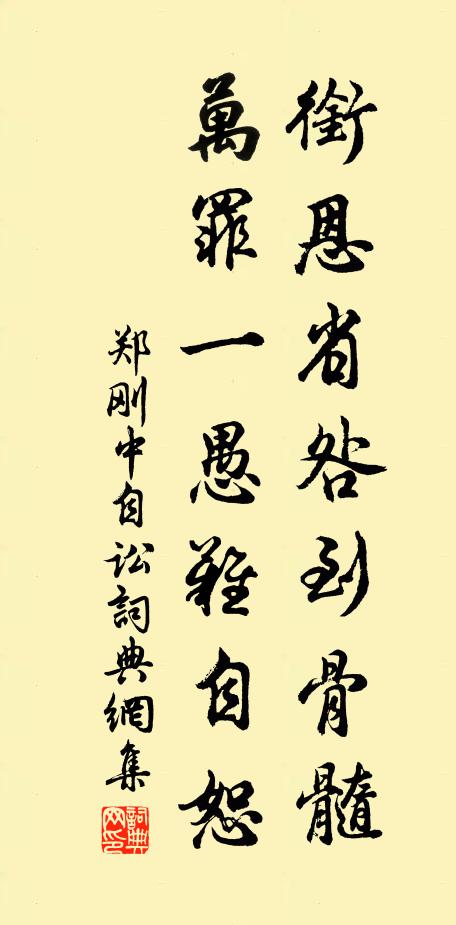 銜恩省咎到骨髓
萬罪一愚難自恕
郑刚中自讼詞典網集
詞典网印